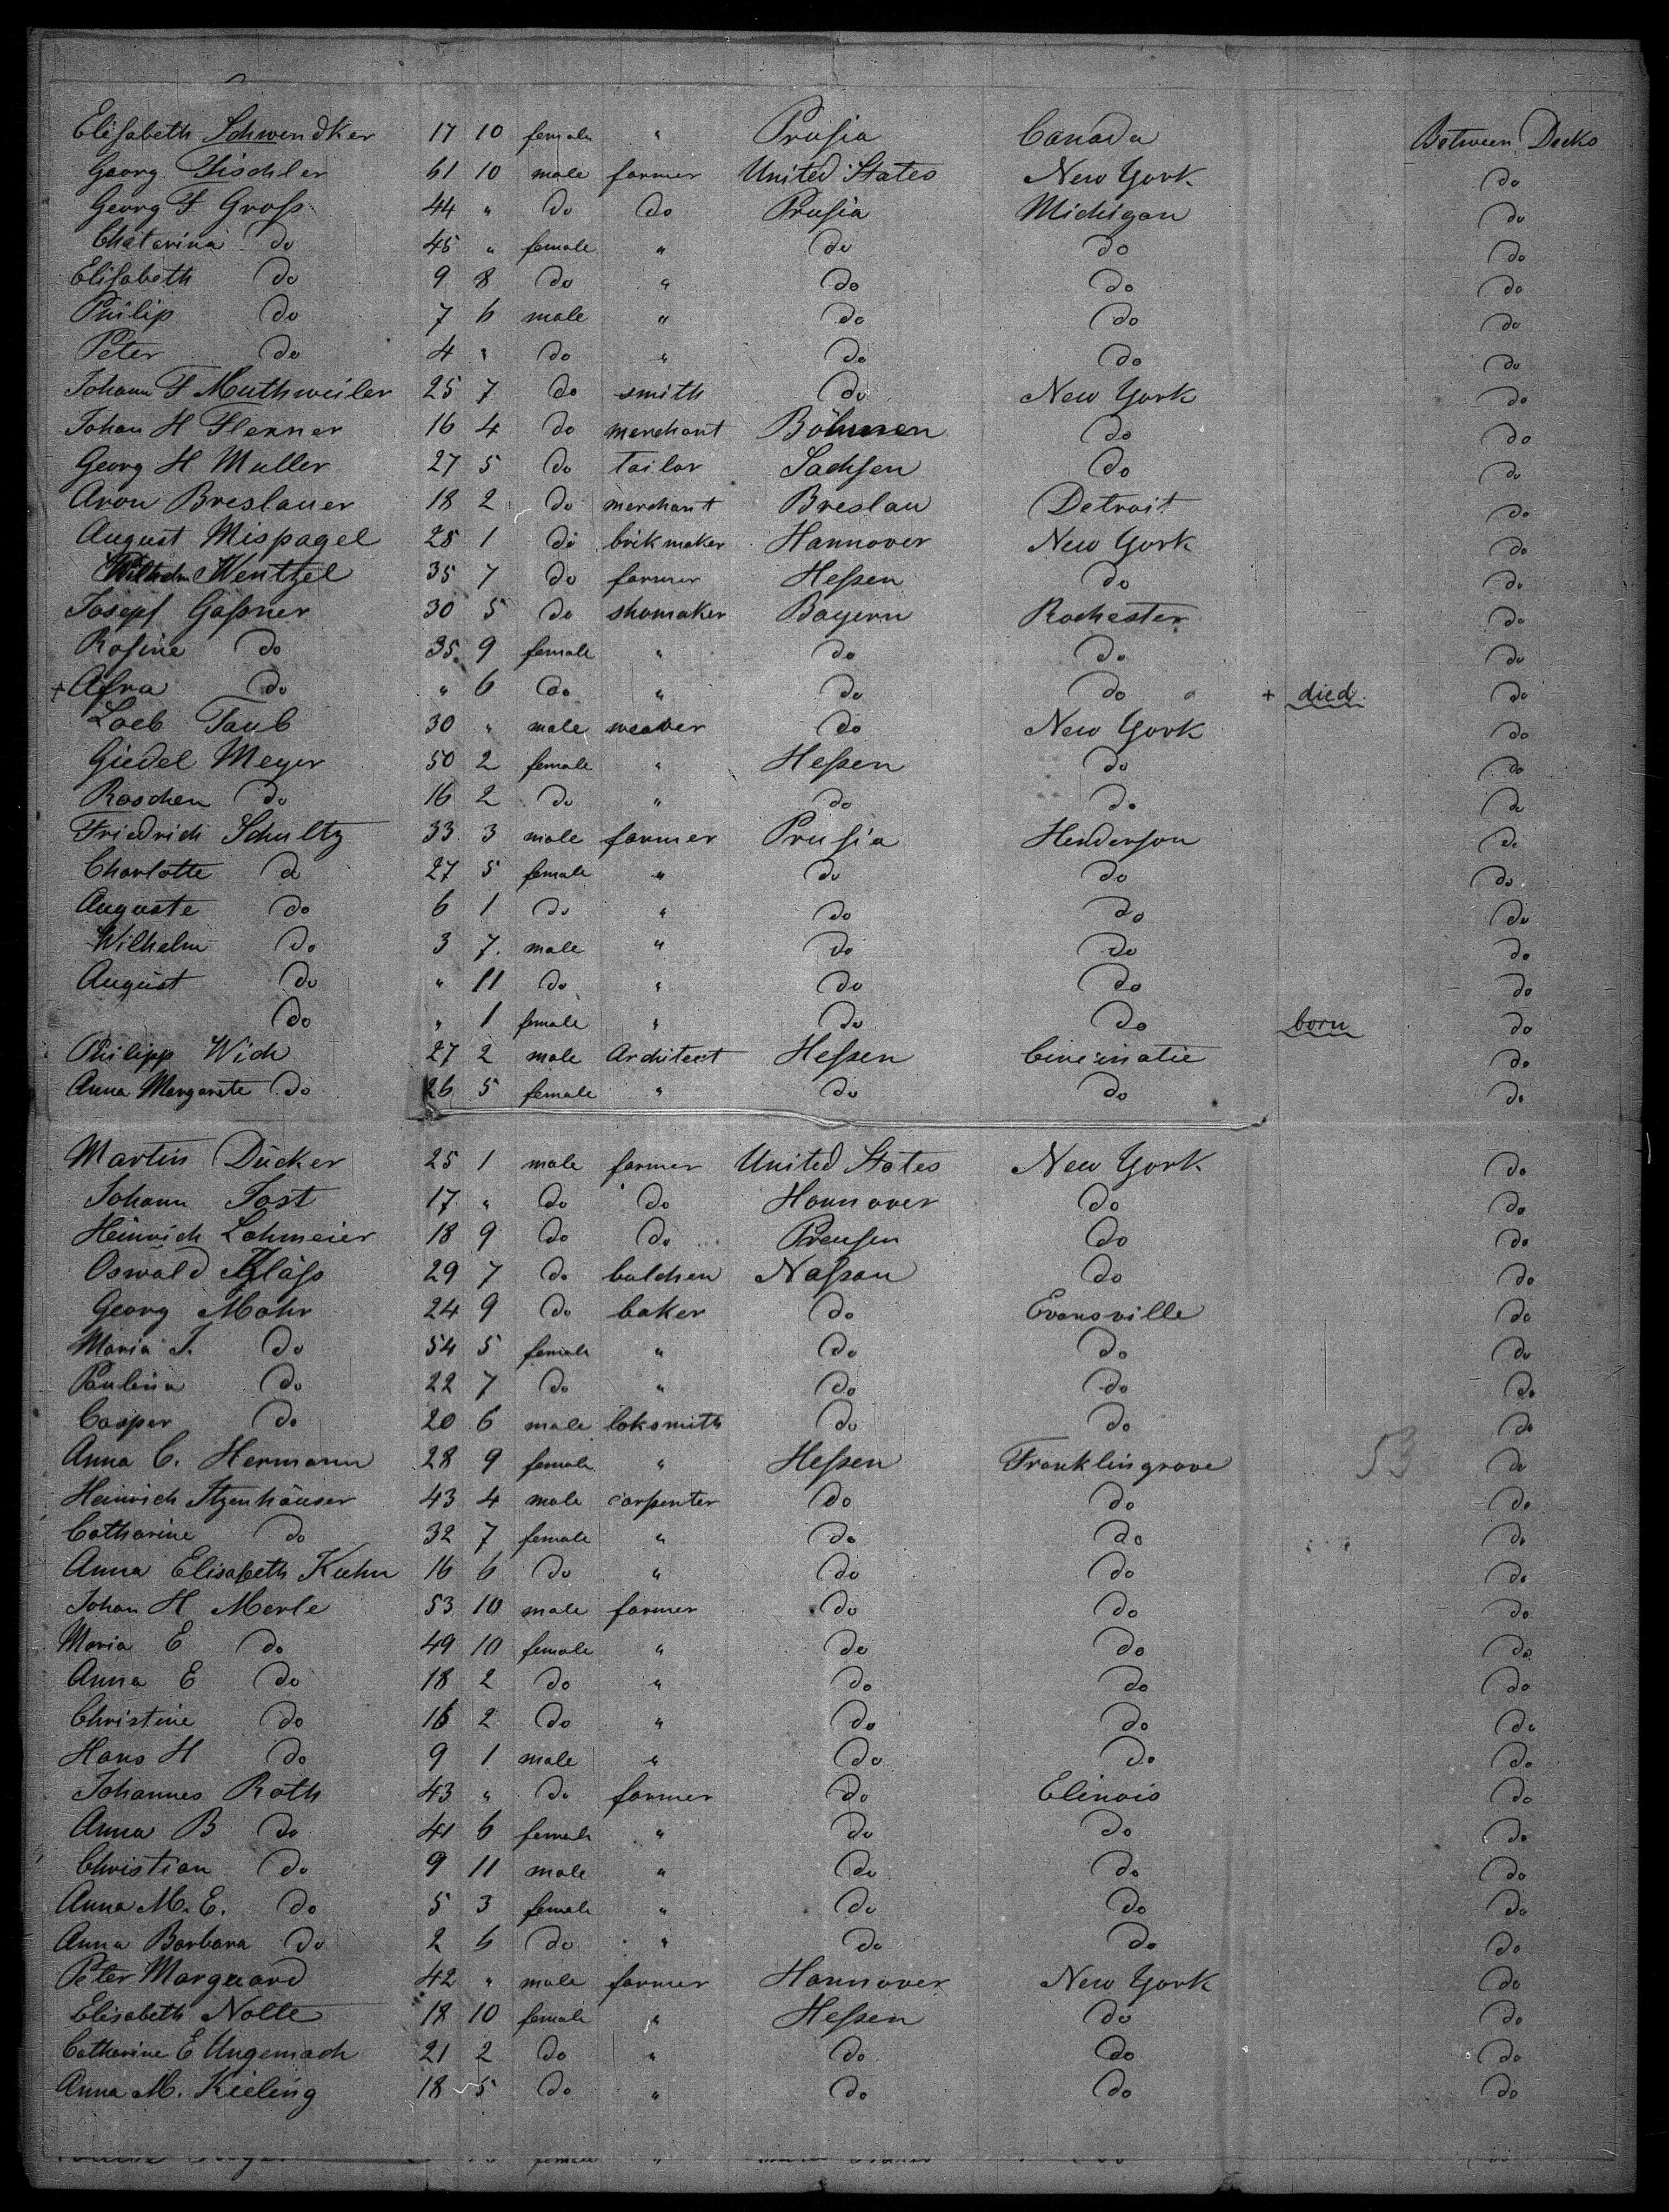 Elisabeth Schwendker 17 10 female " Prusia Canada Between Decks
Georg Tischler 61 10 male farmer United States New York do
Georg F Gross 44 " do do Prusia Michigan do
Chatarina do 45 " female " do do do
Elisabeth do 9 8 do " do do do
Philip do 7 6 male " do do do
Peter do 4 " do " do do do
Johann F Muthweiler 25 7 do smith do New York do
Johan H Flenner 16 4 do merchant Böhmen do do
Georg H Muller 27 5 do Tailor Sachsen do do
Aron Breslauer 18 2 do merchant Breslau Detroit do
August Mispagel 28 1 do brikmaker Hannover New York do
Wilhelm Wentzel 35 7 do farmer Hessen do do
Josepf Gassner 30 5 do shomaker Bayern Rochester do
Rosine do 35 9 female " do do do
+ Afra do " 6 do " do do + died do
Loeb Taub 30 " male weaver do New York do
Giedel Meyer 50 2 female " Hessen do do
Roschen do 16 2 do " do do do
Friedrich Schultz 33 3 male farmer Prusia Henderson do
Charlotte do 27 5 female " do do do
Auguste do 6 1 do " do do do
Wilhelm do 3 7 male " do do do
August do " 11 do " do do do
do " 1 female " do do born do
Philipp Wich 27 2 male Architect Hessen Cincinatie do
Anna Margarete do 26 5 female " do do do
Martin Dücker 25 1 male farmer United States New York do
Johann Jost 17 " do do Hannover do do
Heinrich Lohmeier 18 9 do do Preusen do do
Oswald Kläss 29 7 do Nassau do do
Georg Mohr 24 9 do baker do Evansville do
Maria J. do 54 5 female " do do do
Paulina do 22 7 do " do do do
Casper do 20 6 male loksmith do do do
Anna C. Hermann 28 9 female " Hessen Franklingrove 53 do
Heinrich Itzenhäuser 43 4 male carpenter do do do
Catharine do 32 7 female " do do do
Anna Elisabeth Kuhn 16 6 do " do do do
Johan H Merle 53 10 male farmer do do do
Maria E do 49 10 female " do do do
Anna E do 18 2 do " do do do
Christine do 16 2 do " do do do
Hans H do 9 1 male " do do do
Johannes Roth 43 " do farmer do Elinois do
Anna B do 41 6 female " do do do
Christian do 9 11 male " do do do
Anna M. E. do 5 3 female " do do do
Anna Barbara do 2 6 do " do do do
Peter Marquard 42 " male farmer Hannover New York do
Elisabeth Nolte 18 10 female " Hessen do do
Catharine E Ungemach 21 2 do " do do do
Anna M. Kieling 18 5 do " do do do